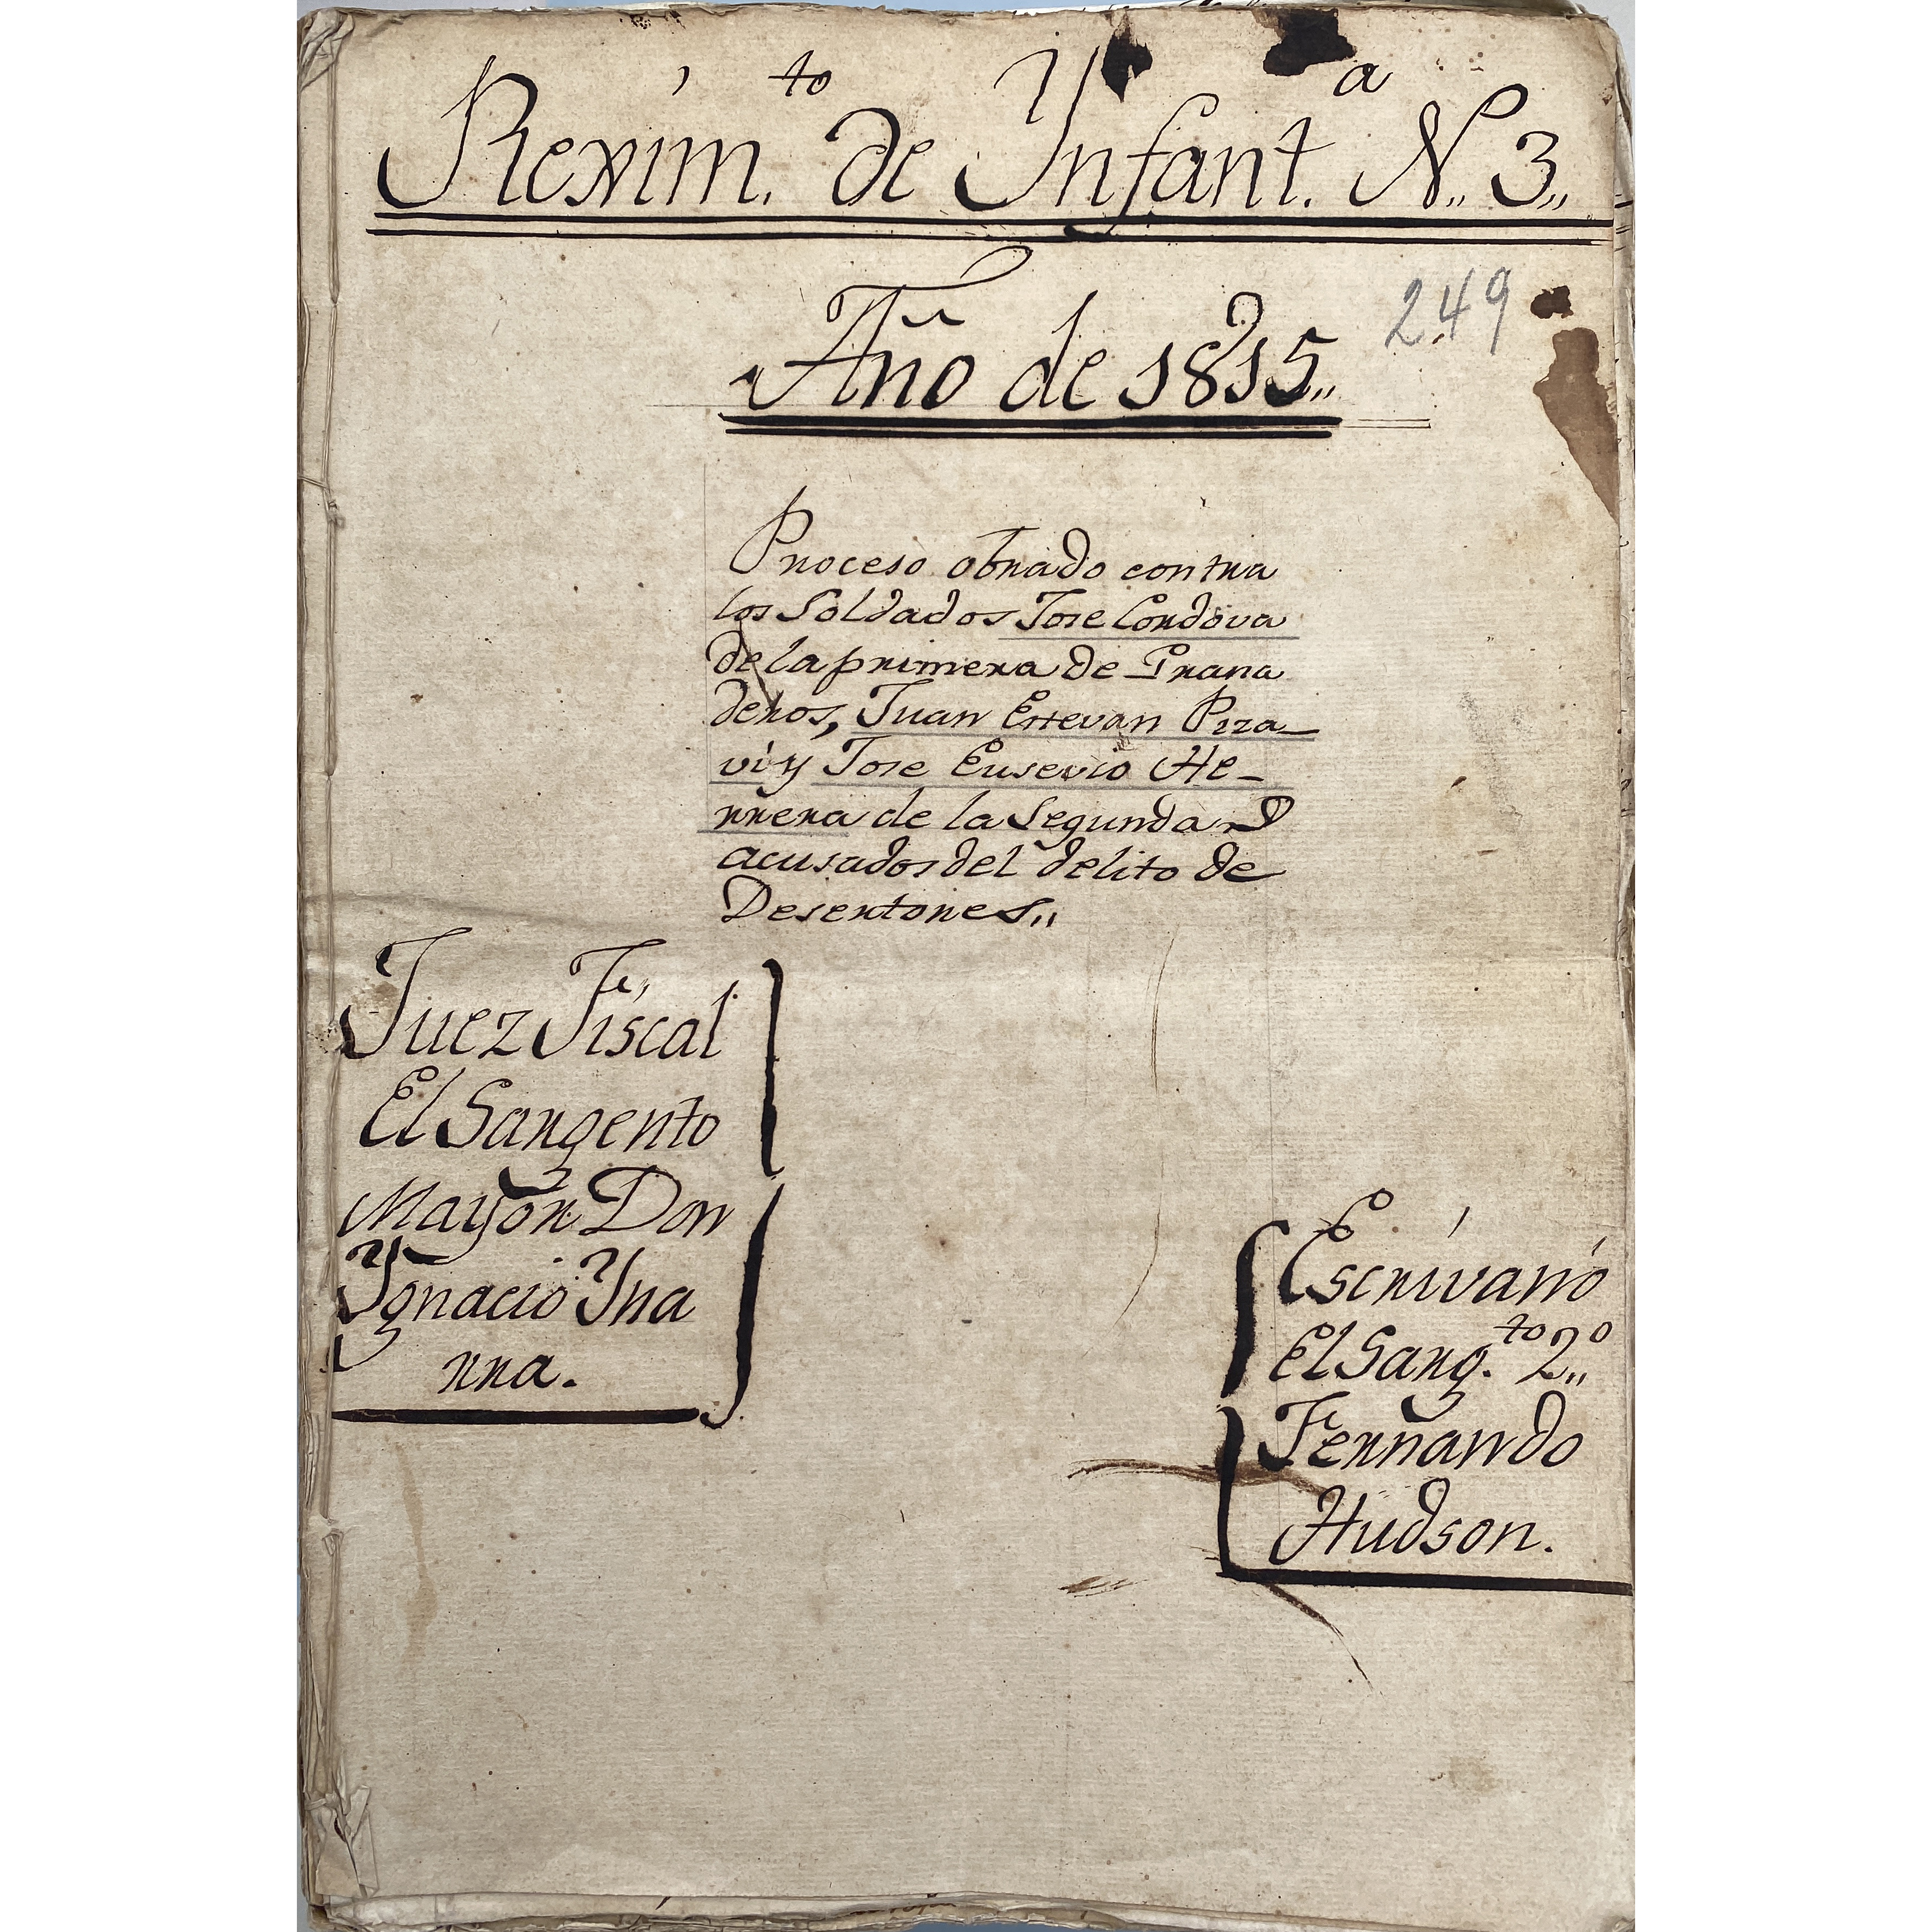 Rexim.to de Ynfant.a N,, 3,,
249
Año de 1815,,
Proceso obrado contra
los Soldados Jose Cordova
de la primera de Grana
deros, Juan Estevan Piza-
vi y Jose Eusevio He-
rrera de la Segunda
acusados del delito de
Desertores,,
Juez Fiscal
El Sargento
Mayor Don
Ygnacio Yna
rra.
Escrivano
El Sarg.to 2,,o
Fernando
Hudson.